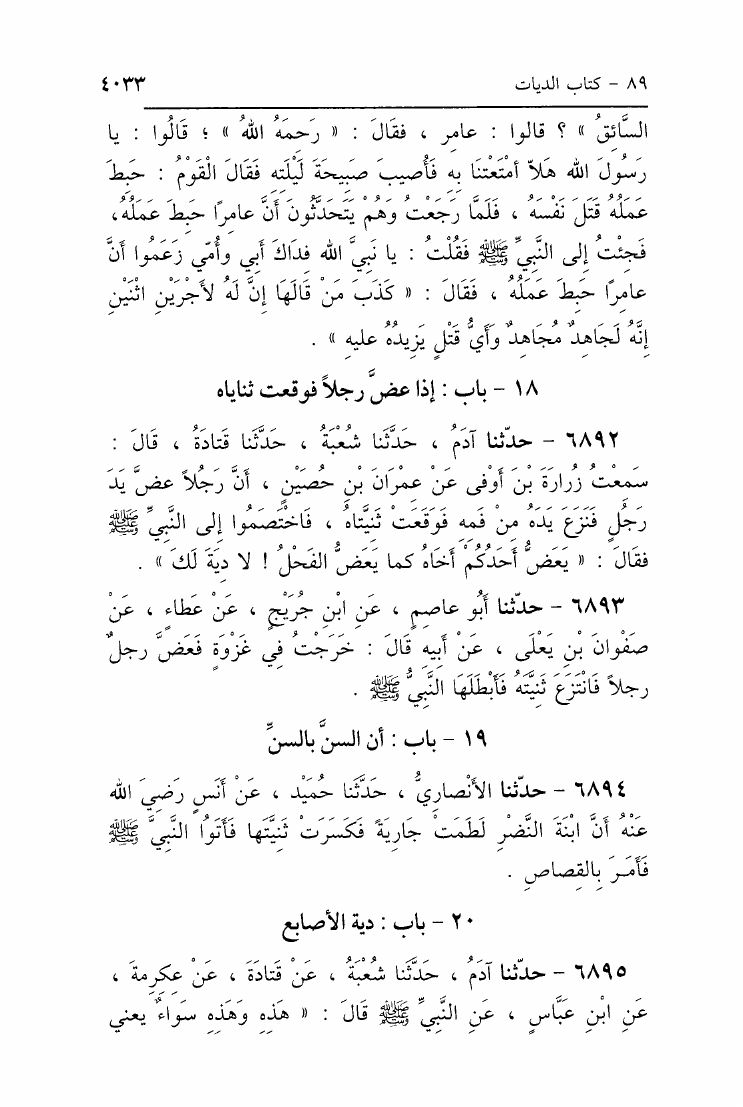 ٨٩ - كتاب الديات ٤٠٣٣
السَّائِقُ » ؟ قالوا : عامر ، فقَالَ : « رَحمَهُ اللهُ » ؛ قَالُوا : يا
رَسُولَ الله هَلاّ أمْتَعْتنَا بِهِ فَأُصيبَ صَبِيحَةَ لَيْلَتِهِ فَقَالَ الْقَوْمُ : حَبِطَ
عَمَلُهُ قَتَلَ نَفْسَهُ ، فَلَمَّا رَجَعْتُ وَهُمْ يَتَحَدَّثُونَ أنَّ عامرًا حَبِطَ عَمَلُهُ،
فَجِئْتُ إلى النَّبِيِّ ﷺ فَقُلْتُ : يا نَبِيَّ الله فدَاكَ أبي وأُمِّي زَعَمُوا أنَّ
عامرًا حَبِطَ عَمَلُهُ ، فَقَالَ : « كَذَبَ مَنْ قَالَهَا إنَّ لَهُ لأجْرَيْنِ اثْنَيْنِ
إنَّهُ لَجَاهِدٌ مُجَاهِدٌ وَأيُّ قَتْلٍ يَزِيدُهُ عليه » .
١٨ - باب : إذا عضَّ رجلاً فوقعت ثناياه
٦٨٩٢ - حدّثنا آدَمُ ، حَدَّثَنا شُعْبَةُ ، حَدَّثَنا قَتادَةُ ، قَالَ :
سَمِعْتُ زُرارَةَ بْنَ أوْفى عَنْ عِمْرَانَ بْنِ حُصَيْنٍ ، أنَّ رَجُلاً عضَّ يَدَ
رَجُلٍ فَنَزَعَ يَدَهُ مِنْ فَمِهِ فَوَقَعَتْ ثَنِيَّتاهُ ، فَاخْتَصَمُوا إلى النَّبِيِّ ﷺ
فقَالَ : « يَعَضُّ أحَدُكُمْ أخَاهُ كما يَعَضُّ الفَحْلُ ! لا دِيَةَ لَكَ » .
٦٨٩٣ - حدّثنا أبُو عاصِمٍ ، عَنِ ابْنِ جُرَيْجٍ ، عَنْ عَطاءٍ ، عَنْ
صَفْوانَ بْنِ يَعْلَى ، عَنْ أبِيهِ قَالَ : خَرَجْتُ فِي غَزْوَةٍ فَعَضَّ رجلٌ
رجلاً فَانْتَزَعَ ثَنِيَّتَهُ فَأبْطَلَهَا النَّبِيُّ ﷺ .
١٩ - باب : أن السنَّ بالسنِّ
٦٨٩٤ - حدّثنا الأنْصارِيُّ ، حَدَّثَنا حُمَيْد ، عَنْ أنَسٍ رَضِيَ الله
عَنْهُ أنَّ ابْنَةَ النَّضْرِ لَطَمَتْ جارِيَةً فَكَسَرَتْ ثَنِيَّتَها فَأتَوُا النَّبِيَّ ﷺ
فَأمَرَ بِالقِصاصِ .
٢٠ - باب : دية الأصابع
٦٨٩٥ - حدّثنا آدَمُ ، حَدَّثَنا شُعْبَةُ ، عَنْ قَتادَةَ ، عَنْ عِكرِمةَ ،
عَنِ ابْنِ عَبَّاسٍ ، عَنِ النَّبِيِّ ﷺ قَالَ : « هَذِهِ وَهَذِهِ سَواءٌ يعني